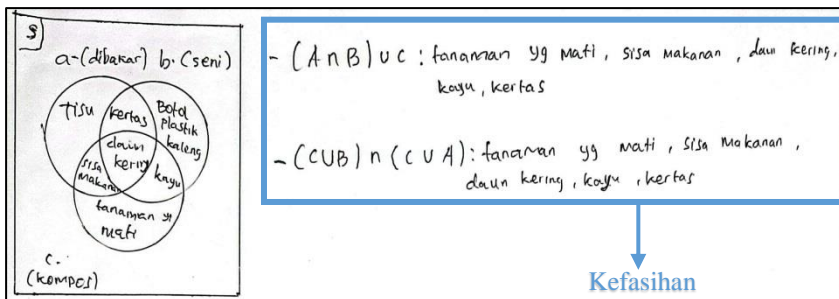 S
a-(dibakar) b. (seni)
Tisu
kertas
Botol
plastik
kaleng
daun
kering
sisa
makanan
kayu
tanaman yg
mati
c.
(kompos)
- (A∩B) ∪ C : tanaman yg mati, sisa makanan, daun kering,
kayu, kertas
- (C∪B) ∩ (C ∪ A) : tanaman yg mati, sisa makanan,
daun kering, kayu, kertas
Kefasihan